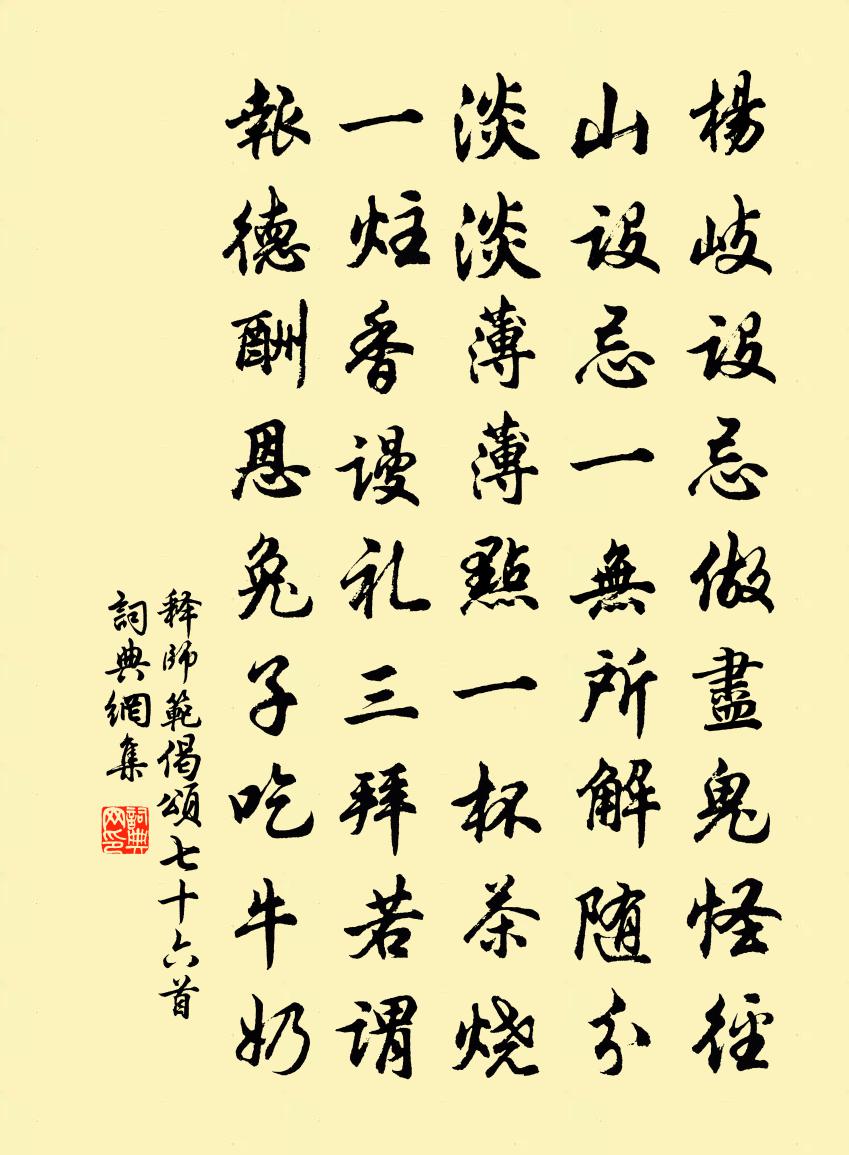 楊岐設忌做盡鬼怪徑
山設忌一無所解随分
淡淡薄薄點一杯茶烧
一炷香谩礼三拜若谓
報德酬恩兔子吃牛奶
释师範偈頌七十六首
詞典網集
詞典網印